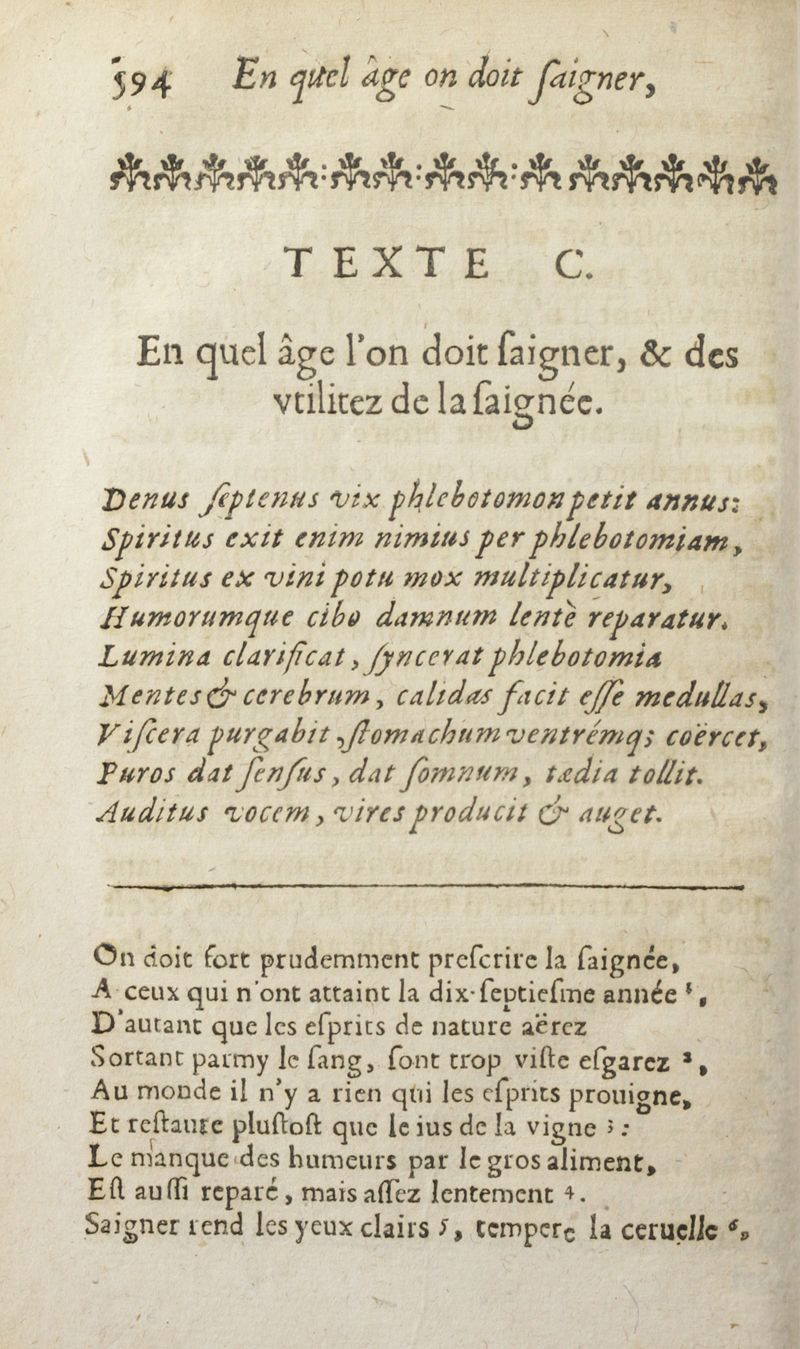 594 En quel âge on doit ſaigner,
TEXTE C.
En quel âge l'on doit ſaigner, & des
vtilitez de la ſaignée.
Denus ſeptenus vix phlebotomon petit annus:
Spiritus exit enim nimius per phlebotomiam,
Spiritus ex vini potu mox multiplicatur,
Humorumque cibo damnum lentè reparatur.
Lumina clarificat, ſyncerat phlebotomia
Mentes & cerebrum, calidas facit eſſe medullas,
Viſcera purgabit, ſtomachum ventrémq; coërcet,
Puros dat ſenſus, dat ſomnum, tædia tollit.
Auditus vocem, vires producit & auget.
On doit fort prudemment preſcrire la ſaignée,
A ceux qui n'ont attaint la dix-ſeptieſme année ¹,
D'autant que les eſprits de nature aërez
Sortant parmy le ſang, ſont trop viſte eſgarez ²,
Au monde il n'y a rien qui les eſprits prouigne,
Et reſtaure pluſtoſt que le ius de la vigne ³ :
Le manque des humeurs par le gros aliment,
Eſt auſſi reparé, mais aſſez lentement ⁴.
Saigner rend les yeux clairs ⁵, tempere la ceruelle ⁶,